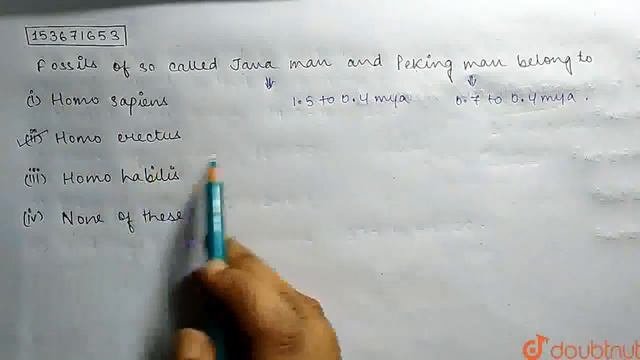 153671653
Fossils of so called Java man and Peking man belong to
(i) Homo sapiens
1.5 to 0.4 mya
0.7 to 0.4 mya.
(ii) Homo erectus
(iii) Homo habilis
(iv) None of these
doubtnut